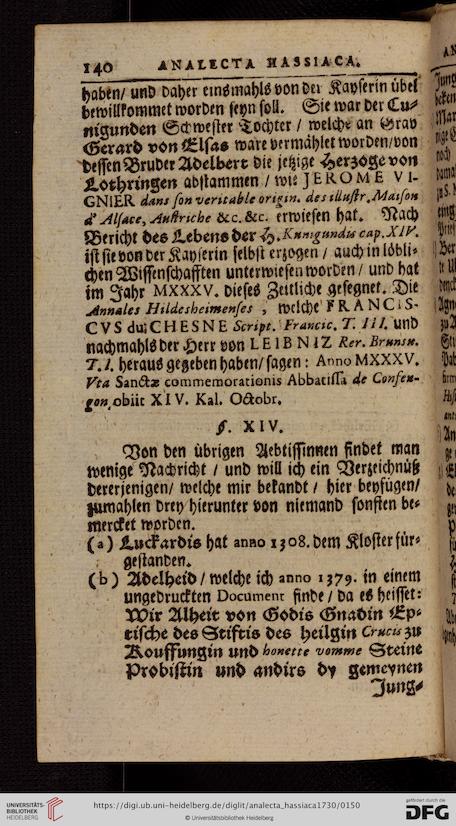 140 ANALECTA HASSIACA.
haben/ und daher einsmahls von der Kayserin übel
bewillkommet worden seyn soll. Sie war der Cu-
nigunden Schwester Tochter / welche an Grav
Gerard von Elsas ware vermählet worden/von
dessen Bruder Adelbert die jetzige Herzoge von
Lothringen abstammen / wie JEROME VI-
GNIER dans son veritable origin. des illustr. Maison
d' Alsace, Austriche &c. &c. erwiesen hat. Nach
Bericht des Lebens der H. Kunigundis cap. XIV.
ist sie von der Kayserin selbst erzogen / auch in löbli-
chen Wissenschafften unterwiesen worden / und hat
im Jahr MXXXV. dieses Zeitliche gesegnet. Die
Annales Hildesheimenses , welche FRANCIS-
CVS du CHESNE Script. Francic. T. III. und
nachmahls der Herr von LEIBNIZ Rer. Brunsu.
T. I. heraus gegeben haben/ sagen : Anno MXXXV.
Vta Sanctæ commemorationis Abbatissa de Confeu-
gon, obiit XIV. Kal. Octobr.
§. XIV.
Von den übrigen Aebtissinnen findet man
wenige Nachricht / und will ich ein Verzeichnüß
dererjenigen/ welche mir bekandt / hier beyfügen/
zumahlen drey hierunter von niemand sonsten be-
mercket worden.
(a) Luckardis hat anno 1308. dem Kloster für-
gestanden.
(b) Adelheid / welche ich anno 1379. in einem
ungedruckten Document finde / da es heisset:
Wir Alheit von Godis Gnadin Ep-
tische des Stiftis des heilgin Crucis zu
Kouffungin und honette vomme Steine
Probistin und andirs dy gemeynen
Jung-
UNIVERSITÄTS-
BIBLIOTHEK
HEIDELBERG
https://digi.ub.uni-heidelberg.de/diglit/analecta_hassiaca1730/0150
© Universitätsbibliothek Heidelberg
gefördert durch die
DFG